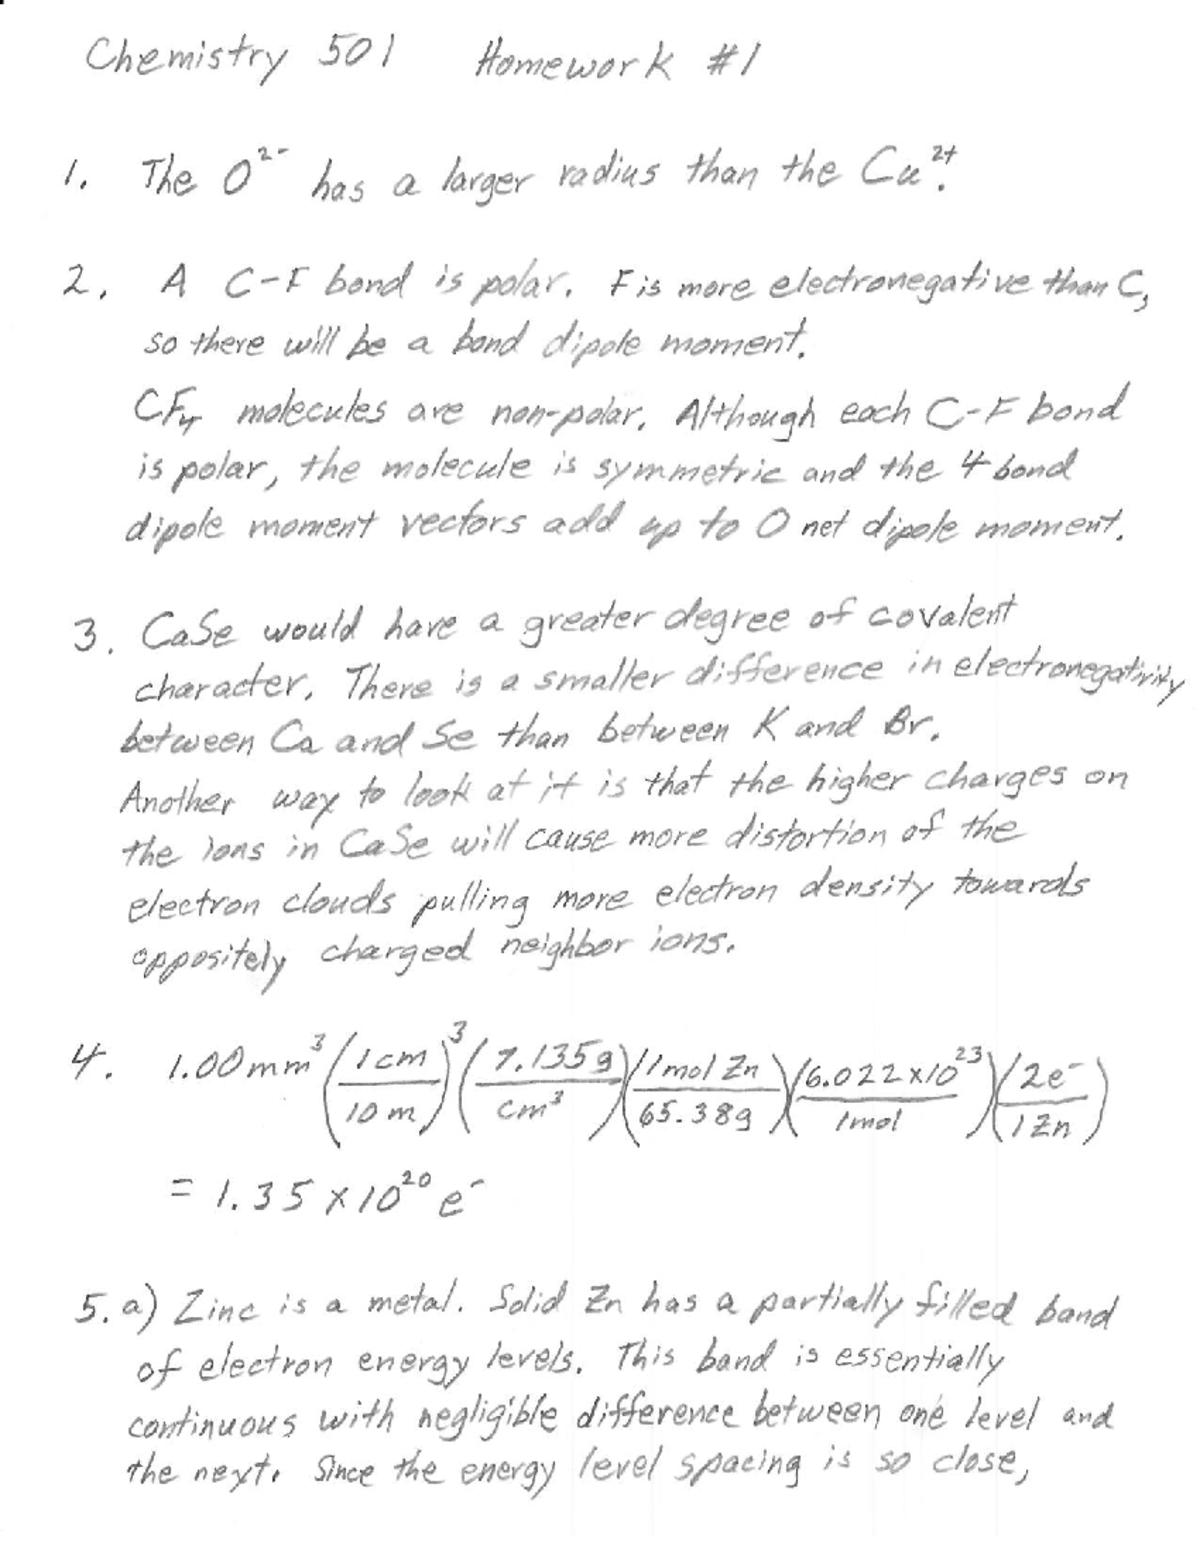 Chemistry 501 Homework #1
1. The O²⁻ has a larger radius than the Cu²⁺.
2. A C-F bond is polar. F is more electronegative than C,
so there will be a bond dipole moment.
CF₄ molecules are non-polar. Although each C-F bond
is polar, the molecule is symmetric and the 4 bond
dipole moment vectors add up to 0 net dipole moment.
3. CaSe would have a greater degree of covalent
character. There is a smaller difference in electronegativity
between Ca and Se than between K and Br.
Another way to look at it is that the higher charges on
the ions in CaSe will cause more distortion of the
electron clouds pulling more electron density towards
oppositely charged neighbor ions.
4. 1.00 mm³ (1 cm / 10 m)³ (7.135 g / cm³) (1 mol Zn / 65.38 g) (6.022 x 10²³ / 1 mol) (2e⁻ / 1 Zn)
= 1.35 x 10²⁰ e⁻
5. a) Zinc is a metal. Solid Zn has a partially filled band
of electron energy levels. This band is essentially
continuous with negligible difference between one level and
the next. Since the energy level spacing is so close,